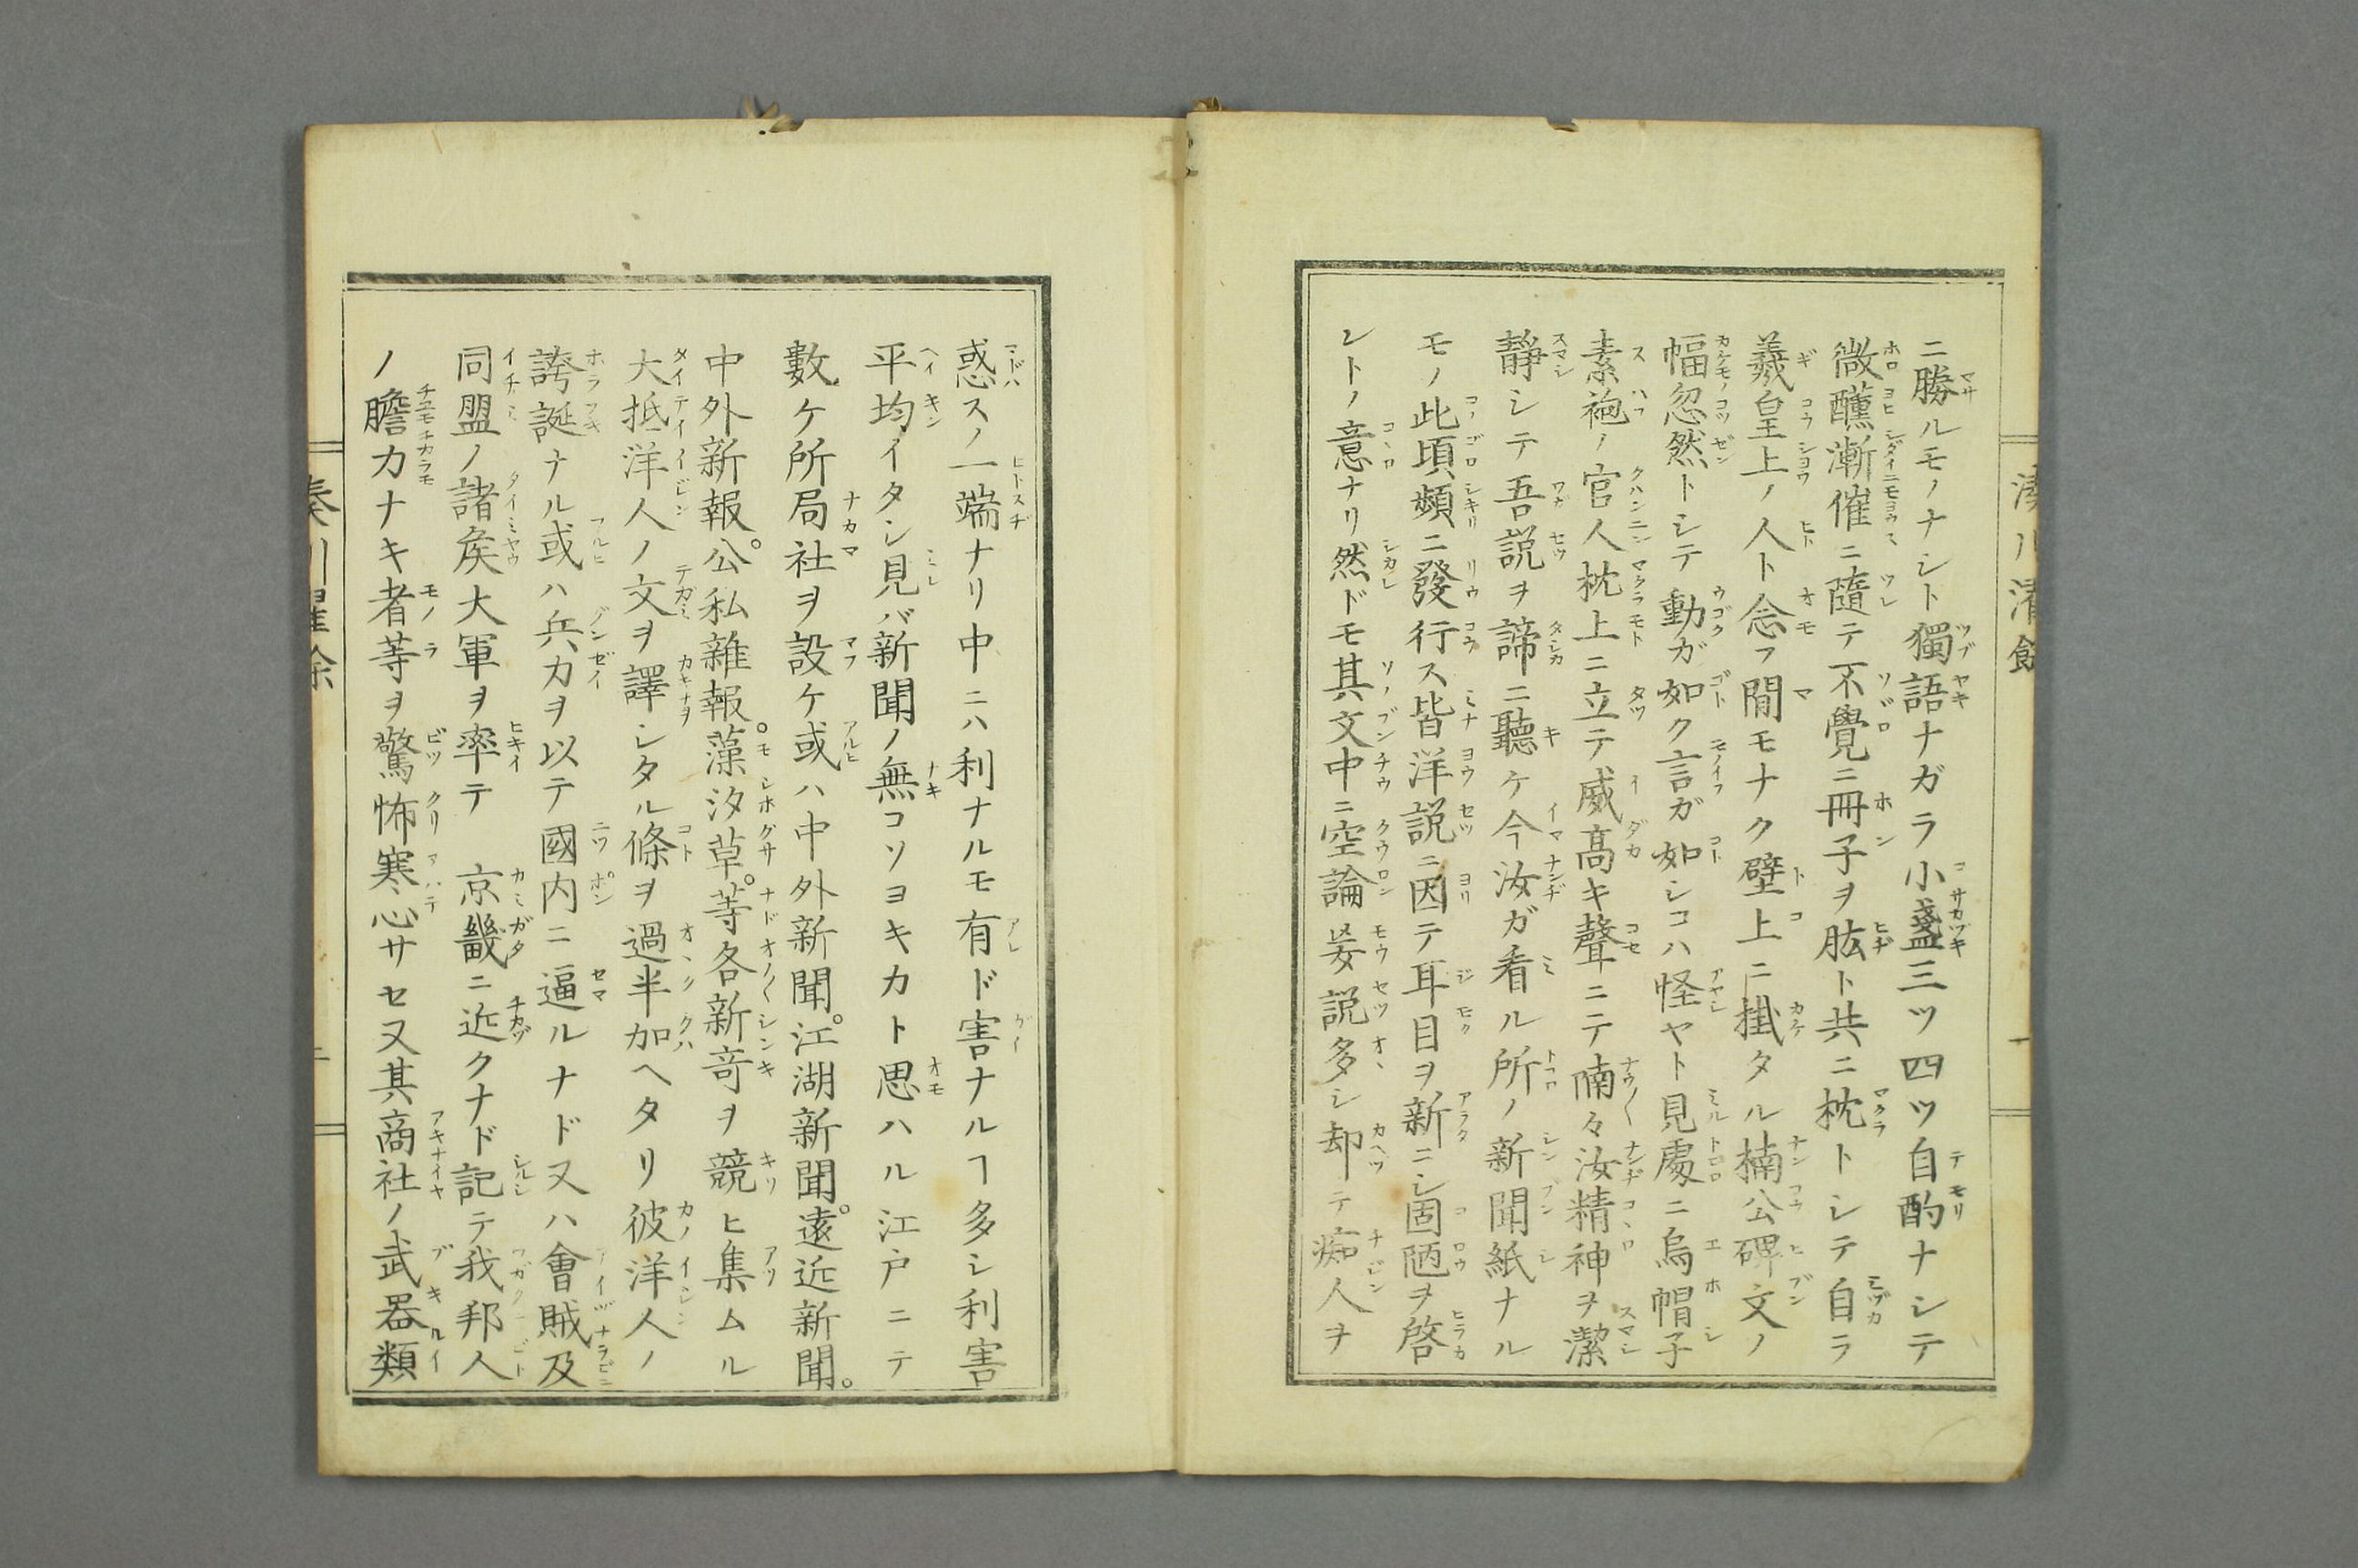 ニ勝ルモノナシト獨語ナガラ小盞三ツ四ツ自酌ナシテ
微醺漸催ニ隨テ不覺ニ冊子ヲ肱ト共ニ枕トシテ自ラ
羲皇上ノ人ト念フ間モナク壁上ニ掛タル楠公碑文ノ
幅忽然トシテ動ガ如ク言ガ如シコハ怪ヤト見處ニ烏帽子
素袍ノ官人枕上ニ立テ威高キ聲ニテ喃々汝精神ヲ潔
靜シテ吾説ヲ諦ニ聽ケ今汝ガ看ル所ノ新聞紙ナル
モノ此頃頻ニ發行ス皆洋説ニ因テ耳目ヲ新ニシ固陋ヲ啓
レトノ意ナリ然ドモ其文中ニ空論妄説多シ却テ痴人ヲ
惑スノ一端ナリ中ニハ利ナルモ有ド害ナルヿ多シ利害
平均イタシ見バ新聞ノ無コソヨキカト思ハル江戸ニテ
數ケ所局社ヲ設ケ或ハ中外新聞。江湖新聞。遠近新聞。
中外新報。公私雜報。藻汐草。等各新奇ヲ競ヒ集ムル
大抵洋人ノ文ヲ譯シタル條ヲ過半加ヘタリ彼洋人ノ
誇誕ナル或ハ兵力ヲ以テ國内ニ逼ルナド又ハ會賊及
同盟ノ諸矦大軍ヲ率テ 京畿ニ近クナド記テ我邦人
ノ膽力ナキ者等ヲ驚怖寒心サセ又其商社ノ武器類